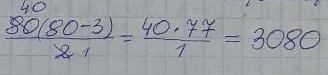 40
80(80-3)/2 1 = 40·77/1 = 3080